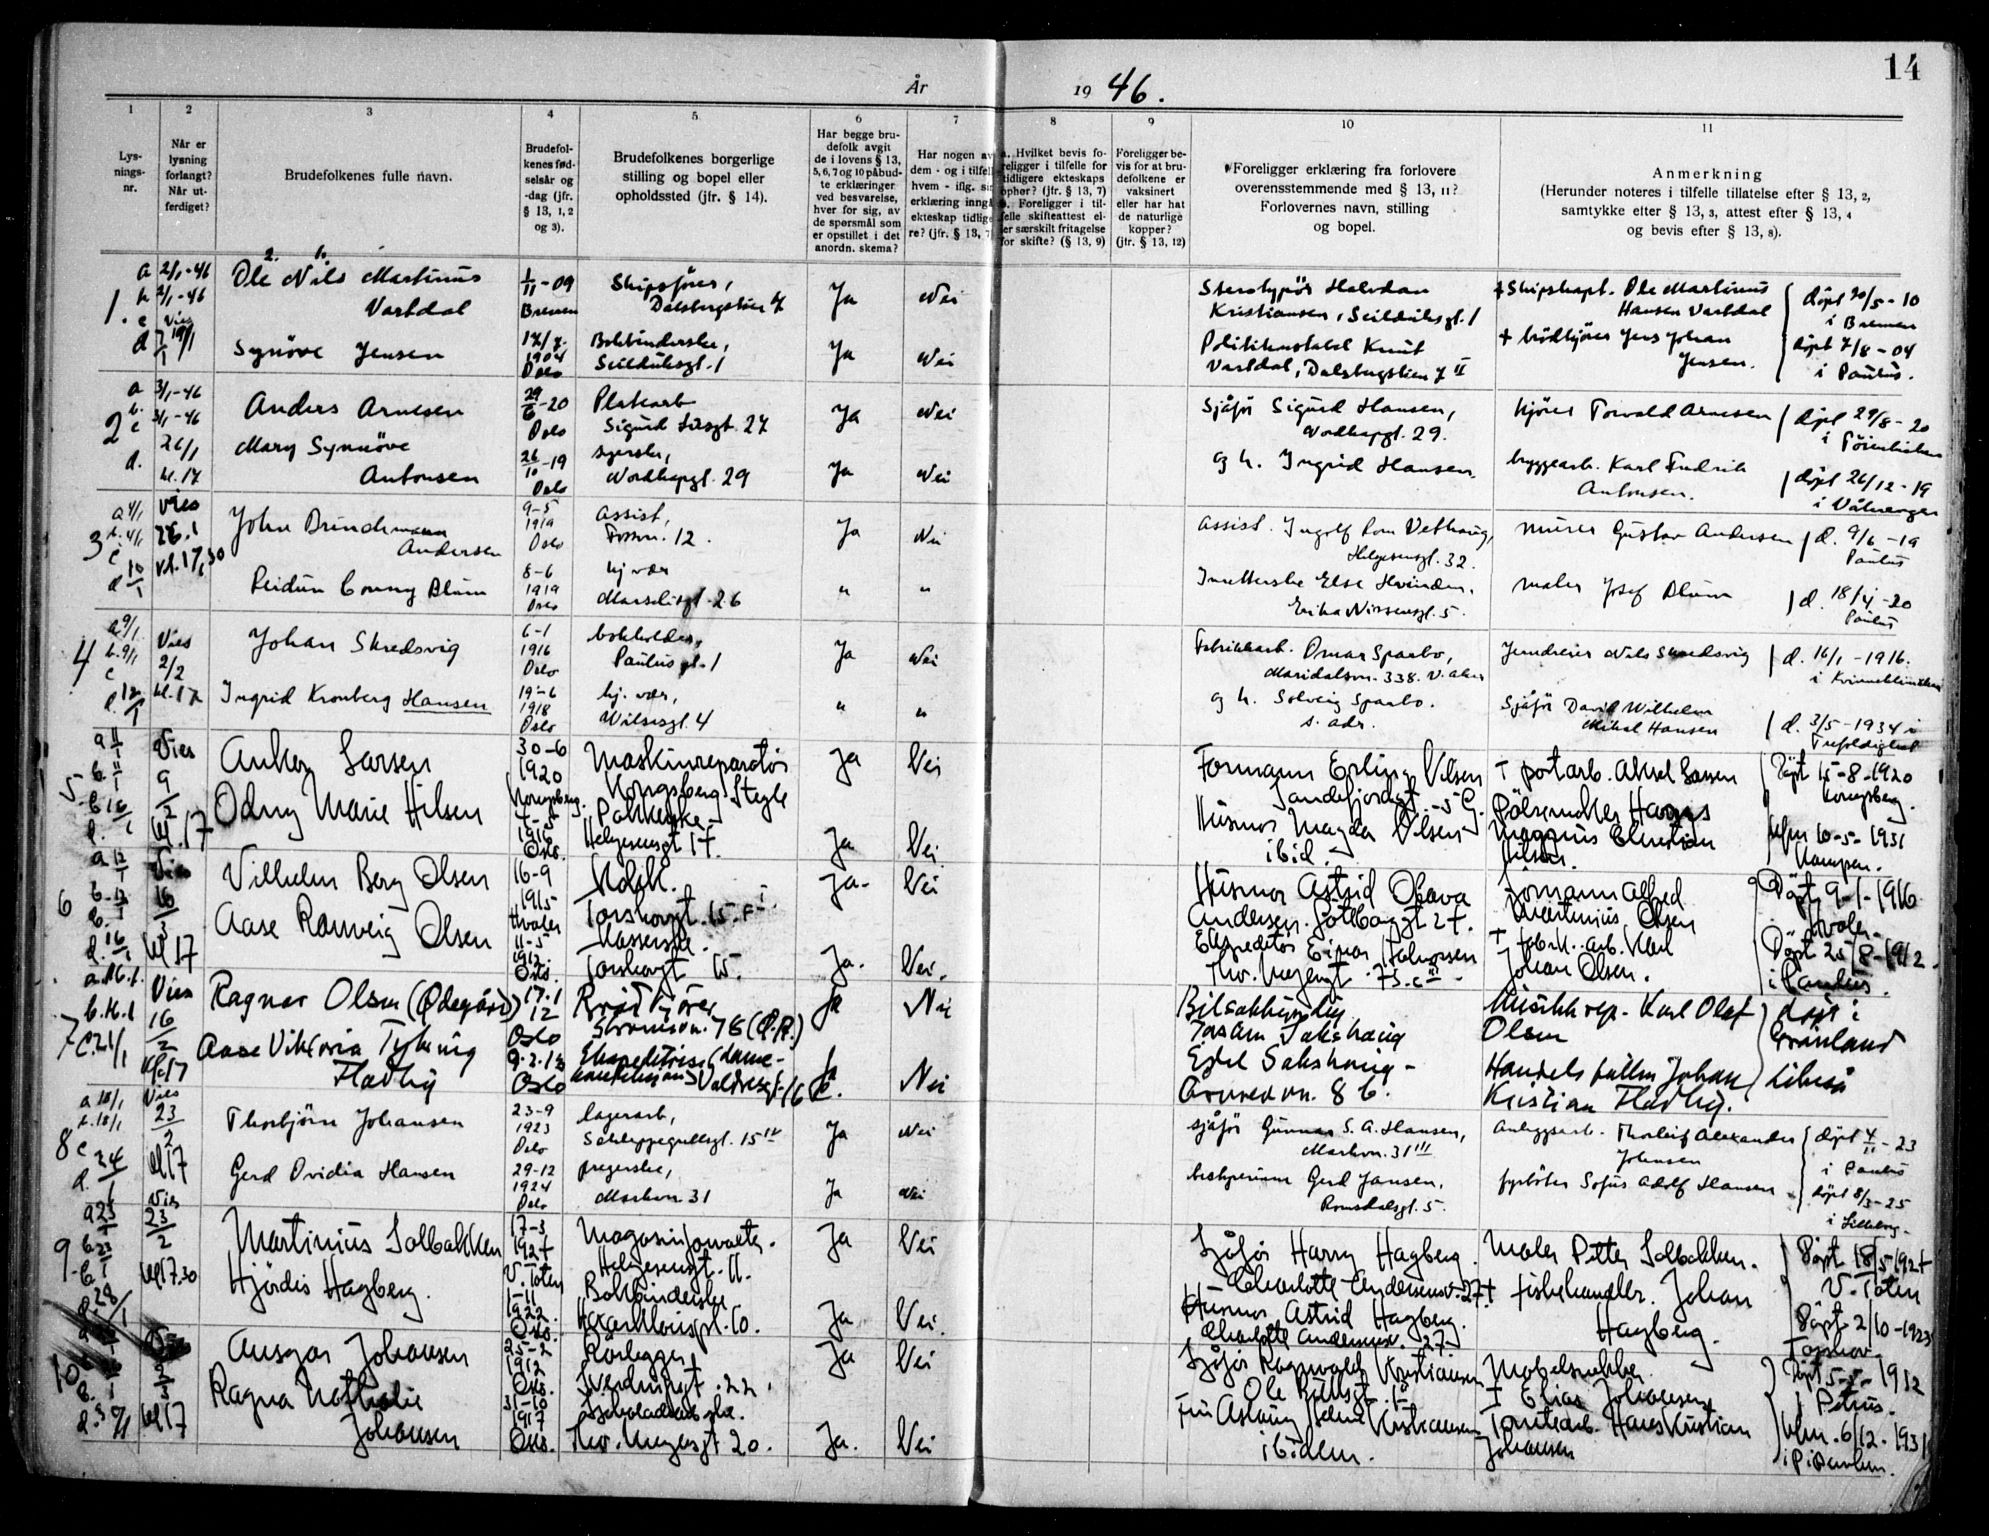 14
År 1946.
1 2 3 4 5 6 7 8 9 10 11
Lys-
nings-
nr.
Når er
lysning
forlangt?
Når ut-
ferdiget?
Brudefolkenes fulle navn.
Brudefol-
kenes fød-
selsår og
-dag (jfr.
§ 13, 1, 2
og 3).
Brudefolkenes borgerlige
stilling og bopel eller
opholdssted (jfr. § 14).
Har begge bru-
defolk avgit
de i lovens § 13,
5, 6, 7 og 10 påbud-
te erklæringer
ved besvarelse,
hver for sig, av
de spørsmål som
er opstillet i det
anordn. skema?
Har nogen av
dem - og i tilfell
hvem - iflg. si
erklæring inngå
ekteskap tidlige
re? (jfr. § 13, 7
a. Hvilket bevis fo-
religger i tilfelle for
tidligere ekteskaps
ophør? (jfr. § 13, 7)
Foreligger i til-
felle skifteattest el-
er særskilt fritagelse
for skifte? (§ 13, 9)
Foreligger be-
vis for at bru-
defolkene er
vaksinert
eller har hat
de naturlige
kopper?
(jfr. § 13, 12)
Foreligger erklæring fra forlovere
overensstemmende med § 13, 11?
Forlovernes navn, stilling
og bopel.
Anmerkning
(Herunder noteres i tilfelle tillatelse efter § 13, 2,
samtykke efter § 13, 3, attest efter § 13, 4
og bevis efter § 13, 8).
1. a 2/1-46
b 2/1-46
Ole Nils Martinus
Vartdal
1/11-09
Bremen
Skipsfører,
Dalsbergstien 7
Ja Nei
Stereotypör Halvdan
Kristiansen, Seilduksgt. 1
+ Skipskapt. Ole Martinus
Hansen Vartdal
döpt 20/5-10
i Bremen
Synöve Jensen
1904
Oslo
Bokbinderske,
Seilduksgt. 1
Ja Nei
Politikonstabel Knut
Vartdal, Dalsbergstien 7 II
+ brödkjörer Jens Johan
Jensen.
döpt 7/8-04
i Paulus.
2 a 3/1-46
b. 3/1-46
c 26/1
d. kl. 17
Anders Arnesen
29/6-20
Oslo
Platearb
27
Ja Nei
Sjåför Sigurd Hansen,
Nordkapgt. 29.
kjörer Torvald Arnesen
döpt 29/8-20
i
Mary Synnöve
Antonsen
26/10-19
Oslo
syerske,
Nordkapgt. 29
Ja Nei
og h. Ingrid Hansen.
bryggearb. Karl Fredrik
Antonsen.
döpt 26/12-19
i Vålerengen
3 a 4/1 Vies
b. 4/1 26.1
c kl. 17,30
d 10/1
John Brinchmann
Andersen
9-5
1919
Oslo
Assist,
Fossvn. 12.
Ja Nei
Assist. Ingolf Rom Vethaug,
Helgesensgt. 32.
Murer Gustav Andersen
d. 9/6-19
Paulus
Reidun Conny Blum
8-6
1919
Oslo
hj. vær
Marseliisgt. 26
" "
Else
Erika Nissensgt. 5.
Maler Josef Blum
d. 18/4-20
Paulus
4 a 9/1 Vies
b. 9/1 2/2
c kl. 17
d. 12/1
Johan Skredsvig
6-1
1916
Oslo
bokholder,
Paulus pl. 1
Ja Nei
Fabrikkarb. Omar Sparbo,
Maridalsvn. 338. V. Aker
Nils Skredsvig
d. 16/1-1916.
i Kvinneklinikken
Ingrid Kronberg Hansen
19-6
1918
Oslo
hj. vær,
Wilsesgt. 4
" "
og h. Solveig Sparbo.
s. adr.
Sjåför David Wilhelm
Mikal Hansen
d. 3/5-1934 i
Trefoldighed
5 a 11/1 Vies
b. 11/1 9/2
kl. 17
Anker Larsen
30-6
1920
Kongsberg.
Maskinreparatör
Kongsberg
Ja Nei
Formann Erling Nilsen
Sandefjordgt. 5 C.
+ portarb. Aksel Larsen
Döpt 15-8-1920
Kongsberg.
Odny Marie Hilsen
Oslo.
Pakkerske
Helgesensgt 17.
Ja Nei
Husmor Magda Nilsen
ibid.
Pölsemaker Hans
Magnus Christian
Hilsen.
kfm 10-5-1931
Kampen.
6 a 12/1 Vies
b. 12/1 16/3
d. 16/1 kl 17
Vilhelm Berg Olsen
16-9
1915
Hvaler
Torshovgt. 15.
Ja. Nei
Husmor Astrid Otava
Andersen. Göteborggt 27.
Formann Alfred
Martinius Olsen
Döpt 9-1-1916
Hvaler.
Aase Ranveig Olsen
11-5
1912.
Oslo.
Kasserske.
Torshovgt 15.
Ja. Nei.
Ekspeditör Einar Halvorsen
Thv. Meyersgt. 73.
+ fabrk. arb. Karl
Johan Olsen.
Döpt 25/8-1912.
i Paulus.
7 a. 16.1. Vies
b. 16.1 16/2
c. 21/1 kl 17
Ragnar Olsen (Ødegård)
17.1
12
Oslo
Brödkjörer
76 (Ø.A.)
Ja Nei
Bilsakkyndig
Sakshaug
Musikkrep. Karl Olaf
Olsen
döpt i
Grönland
Aase Viktoria
Fladby
Oslo
Ekspeditrise (dame-
konfeksjon) Valdresgt. 16
Ja. Nei
Sakshaug -
86.
Handelsfullm Johan
Kristian Fladby.
Lilleså
8 a 18/1 Vies
b. 18/1 23/2
c 24/1 kl 17
d.
Thorbjörn Johansen
23-9
1923
Oslo
lagerarb,
Schleppegrellsgt. 15 IV
Ja Nei
sjåför Gunnar S. A. Hansen,
Markvn. 31 III
Anleggsarb. Thorleif Alexander
Johansen
döpt 4/11-23
i Paulus
Gerd Ovidia Hansen
29-12
1924
Oslo
pregerske,
Markvn 31
Ja Nei
Gerd Jansen,
Romsdalsgt. 5.
fyrböter Sofus Adolf Hansen
döpt 8/3-25
i Lilleborg.
9. a 23/1 Vies
b. 23/1 23/2
c. kl 17.30
d. 28/1
Martinius Solbakken
17-3
1927
V. Toten
Magasinforvalter.
Helgesensgt. 11.
Ja Nei
Sjåför Harry Hagberg.
Charlotte Andersensv. 27
Maler Petter Solbakken.
Döpt 18/5-1927
V. Toten
Hjördis Hagberg.
1-11
1922.
Oslo.
Bokbinderske
Haarklouspl. 10.
Ja Nei.
Husmor Astrid Hagberg.
Charlotte Andersensv. 27
+ fiskehandler. Johan
Hagberg.
Döpt 2/10-1923
Torshov.
10
kl 17
Ansgar Johansen
25-2
1912
Oslo.
Rörlegger
Sverdrupsgt. 22.
Ja Nei
Sjåför Ragnvald Kristiansen
Ole Bullsgt.
Möbelsnekker
+ Elias Johansen
1912
i Petrus.
Ragna Nathalie
Johansen
31-10
1917
Oslo.
Thv. Meyersgt 20.
Ja. Nei
Fru Aslaug Kristiansen
ibidem.
Tomtearb. Hans Kristian
Johansen
kfm. 6/12-1931